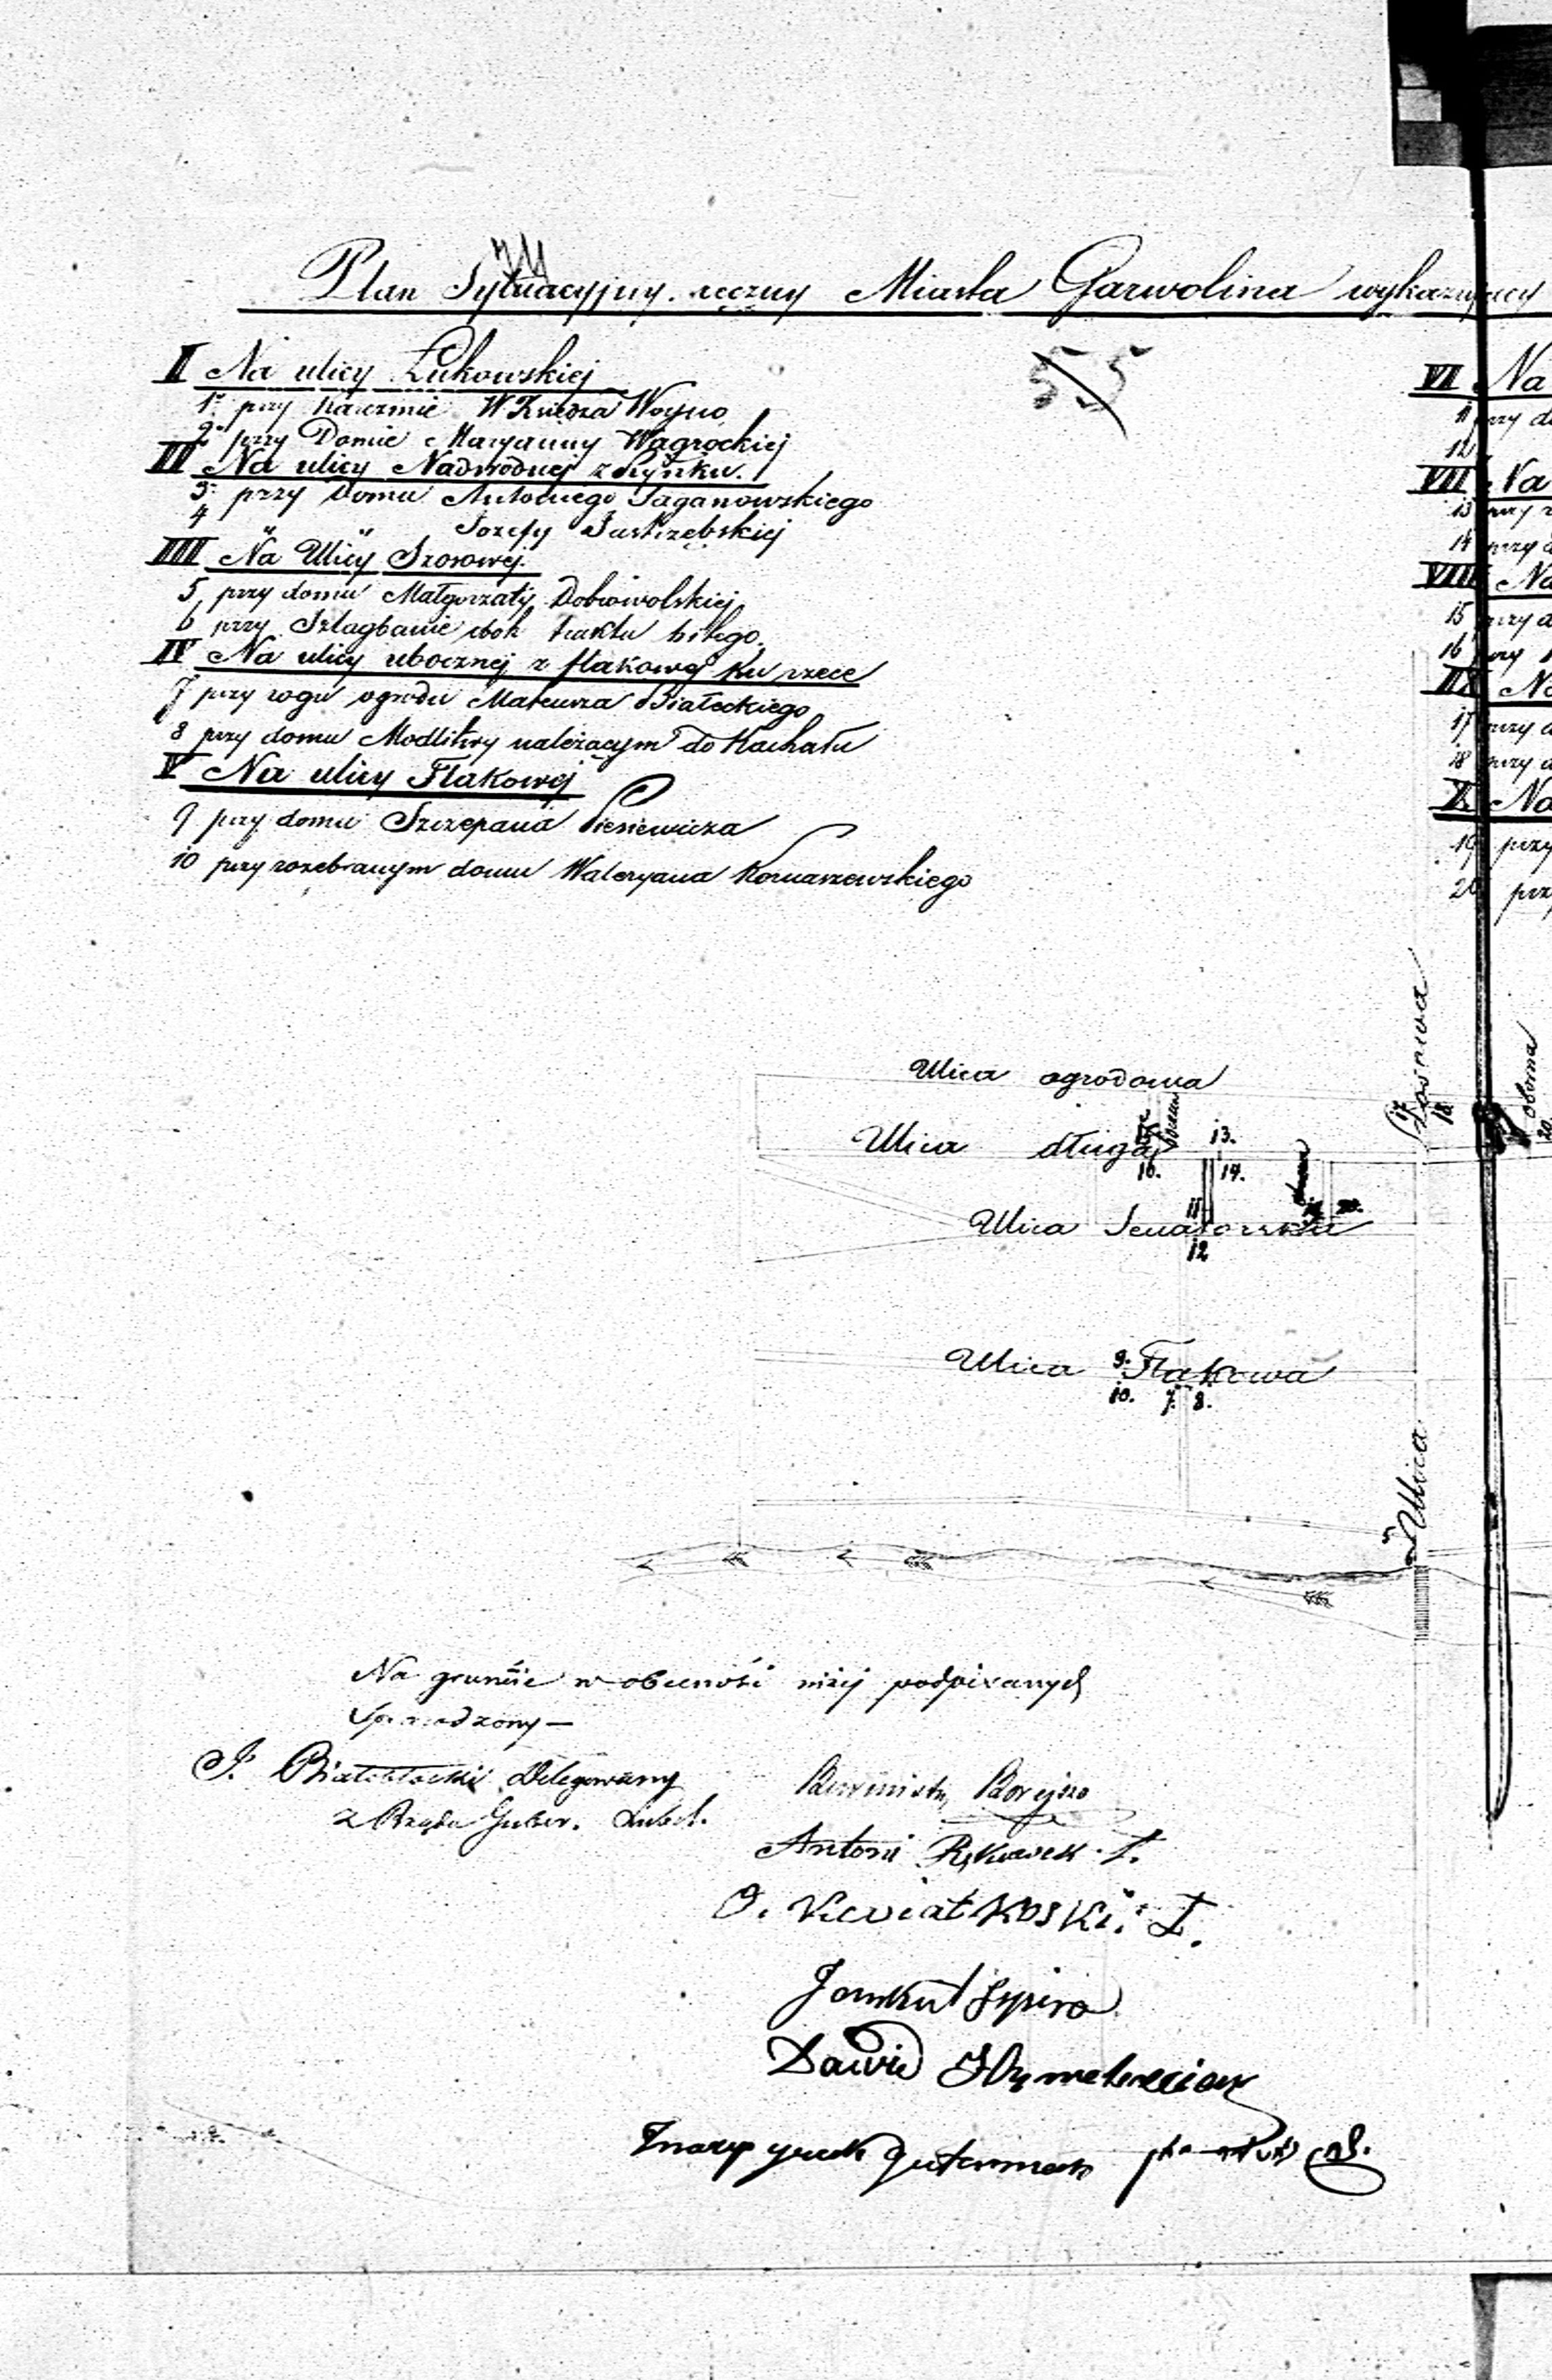 Plan Sytuacyjny ręczny Miasta Garwolina wykazujący
55
I Na ulicy Łukowskiej
1. przy Karczmie W Księdza Woyno
2. przy Domie Maryanny Wagrockiej
II Na ulicy Nadwodnej z Rynku.
3. przy Domu Antoniego Saganowskiego
4 " " Jozefy Jastrzębskiej
III Na Ulicy Szosowej.
5, przy domu Małgorzaty Dobrowolskiej
6, przy Szlagbanie obok traktu bitego.
IV Na ulicy ubocznej z flakowej ku rzece
7 przy rogu ogrodu Mateusza Białeckiego
8 przy domu Modlitwy należącym do Kachału
V Na ulicy Flakowej
9 przy domu Szczepana Piesiewicza
10 przy rozebranym domu Waleryana Komaszewskiego
VI Na
11 przy d
12
VII Na
13 przy
14 przy d
VIII Na
15 przy d
16 przy
IX Na
17 przy d
18 przy d
X Na
19 przy
20 przy
Ulica ogrodowa
Ulica długa
13.
16.
14.
11
Ulica Senatorska
12
Ulica Flakowa
9.
10. 7. 8.
17
18
oborna
20.
Ulica
5
Na gruncie w obecności niżej podpisanych
Sporządzony —
J. Białobłocki Delegowany
z Rządu Guber. Lubel.
Burmistrz Borejszo
Antoni Rękawek Ł.
O. Kewiatkoski. Ł.
Jamkiel Szpiro
Dawid